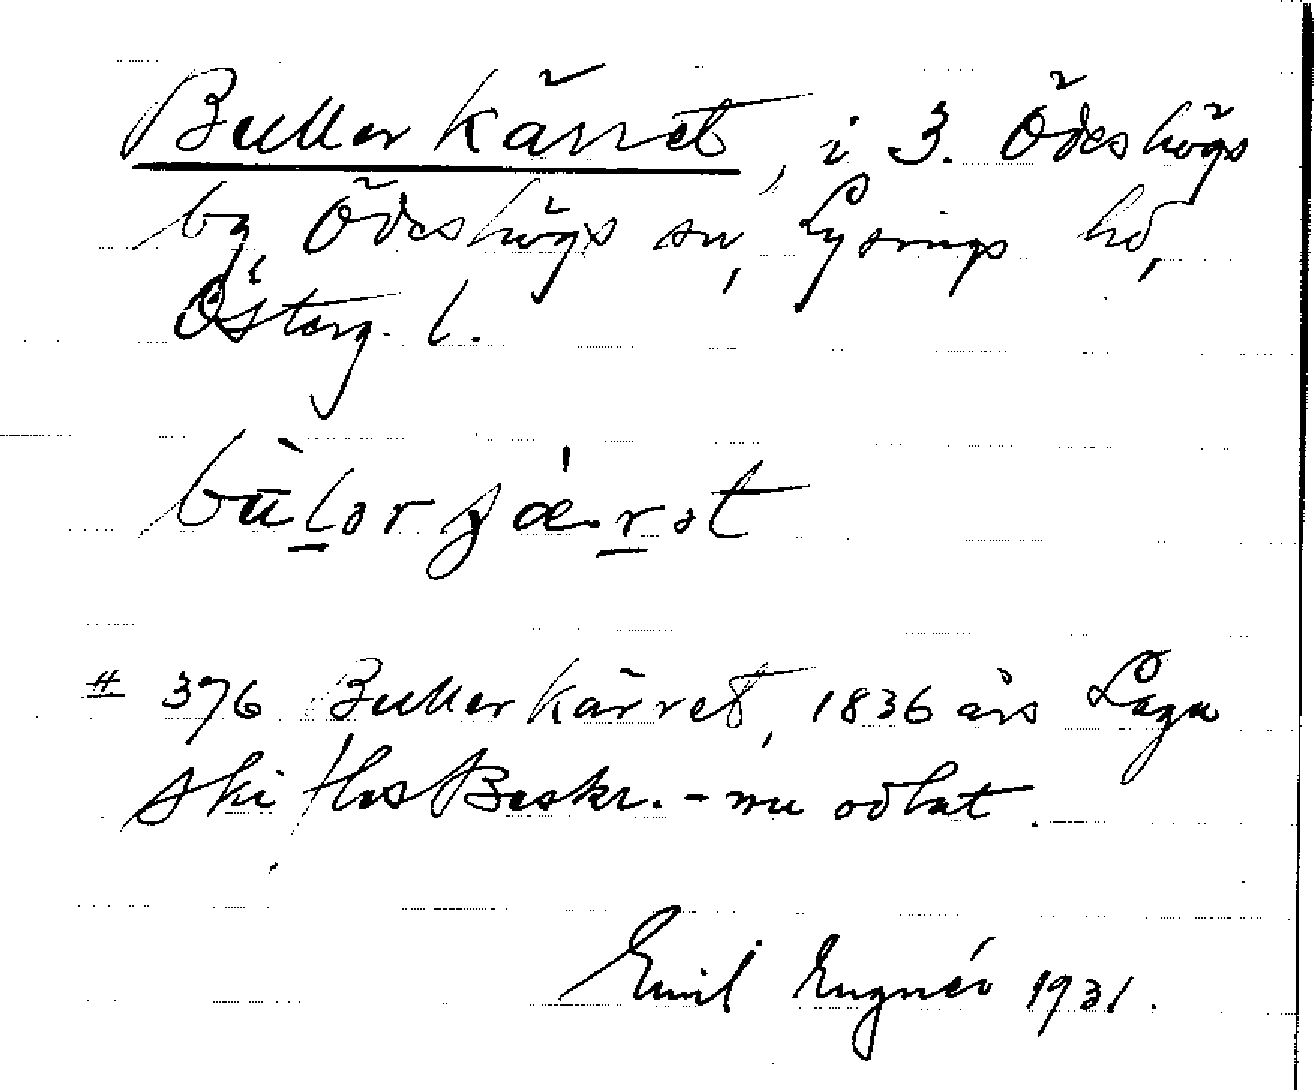 Bullerkärret, i 3. Ödeshögs
by, Ödeshögs sn, Lysings hd,
Österg. l.
bùl̠ər jæ.r̠ət
# 376 Bullerkärret, 1836 års Laga
skiftes Beskr. - nu odlat.
Emil Engnér 1931.